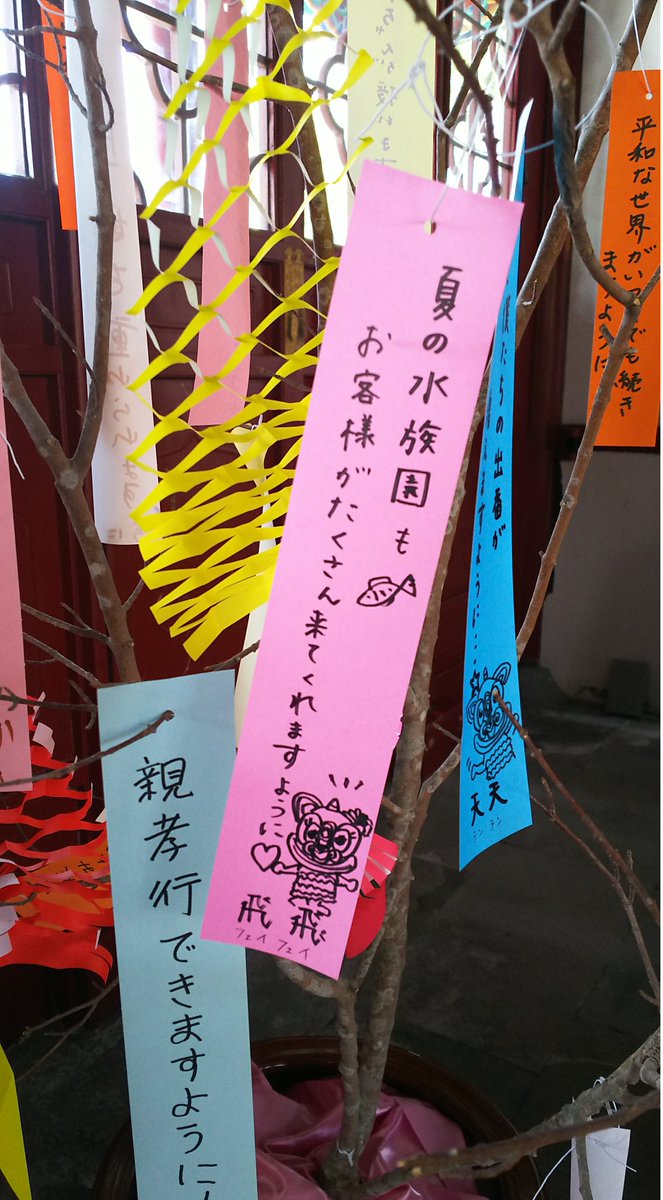 平和な世界がいつでも続き
ますように
僕たちの出番が
えますように・・・
天天
テンテン
夏の水族園も
お客様がたくさん来てくれますように
飛飛
フェイフェイ
親孝行できますように